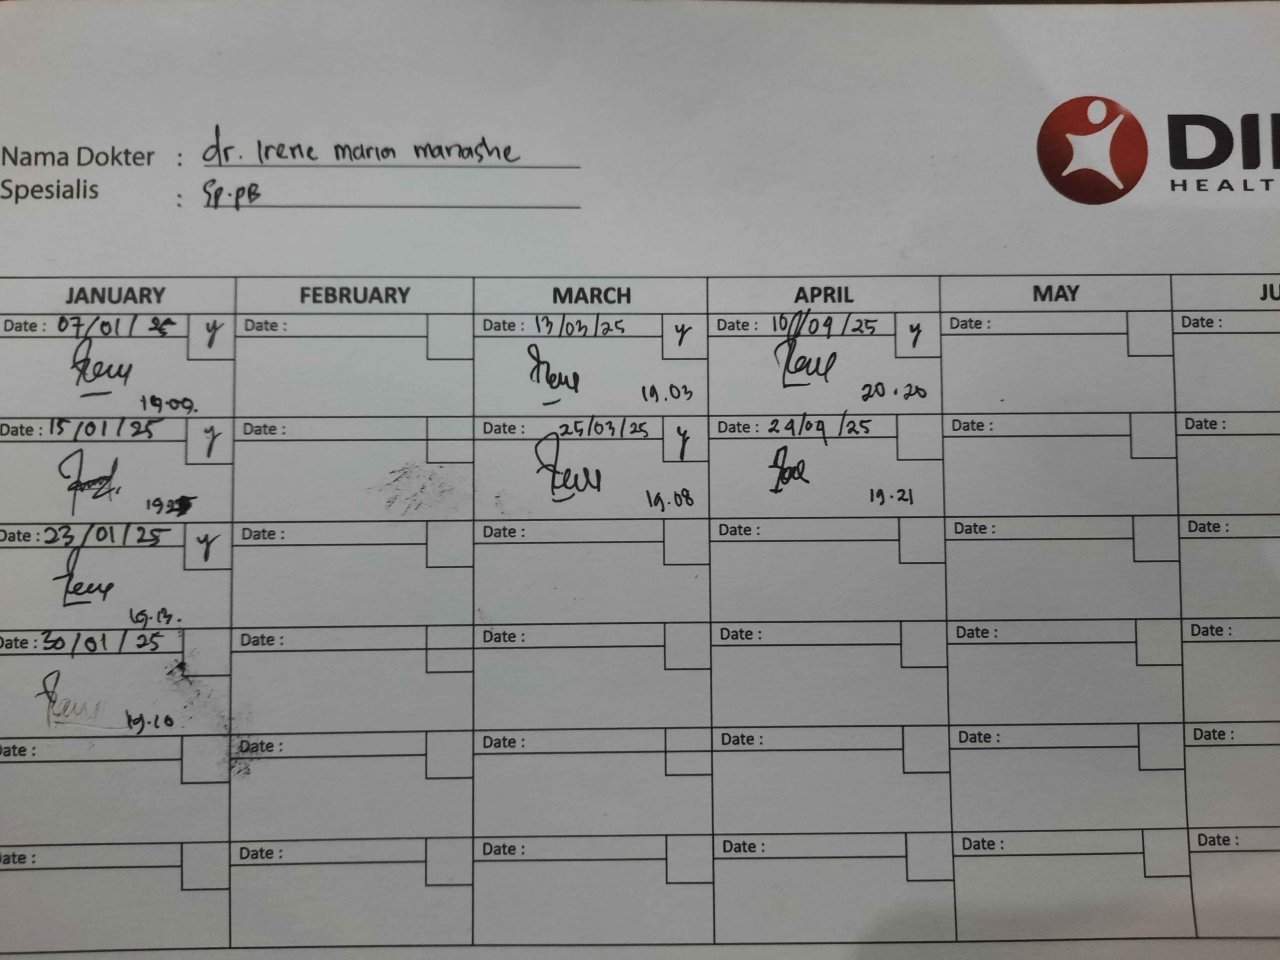 Nama Dokter : dr. Irene marion manashe
Spesialis : Sp.PB
DI
HEALT
JANUARY FEBRUARY MARCH APRIL MAY JU
Date : 07/01/25 y Date : Date : 13/03/25 y Date : 10/04/25 y Date : Date :
19.09. 19.03 20.20
Date : 15/01/25 y Date : Date : 25/03/25 y Date : 24/04/25 Date : Date :
19.08 19.21
Date : 23/01/25 y Date : Date : Date : Date : Date :
19.13.
Date : 30/01/25 Date : Date : Date : Date : Date :
19.10
ate : Date : Date : Date : Date : Date :
ate : Date : Date : Date : Date : Date :